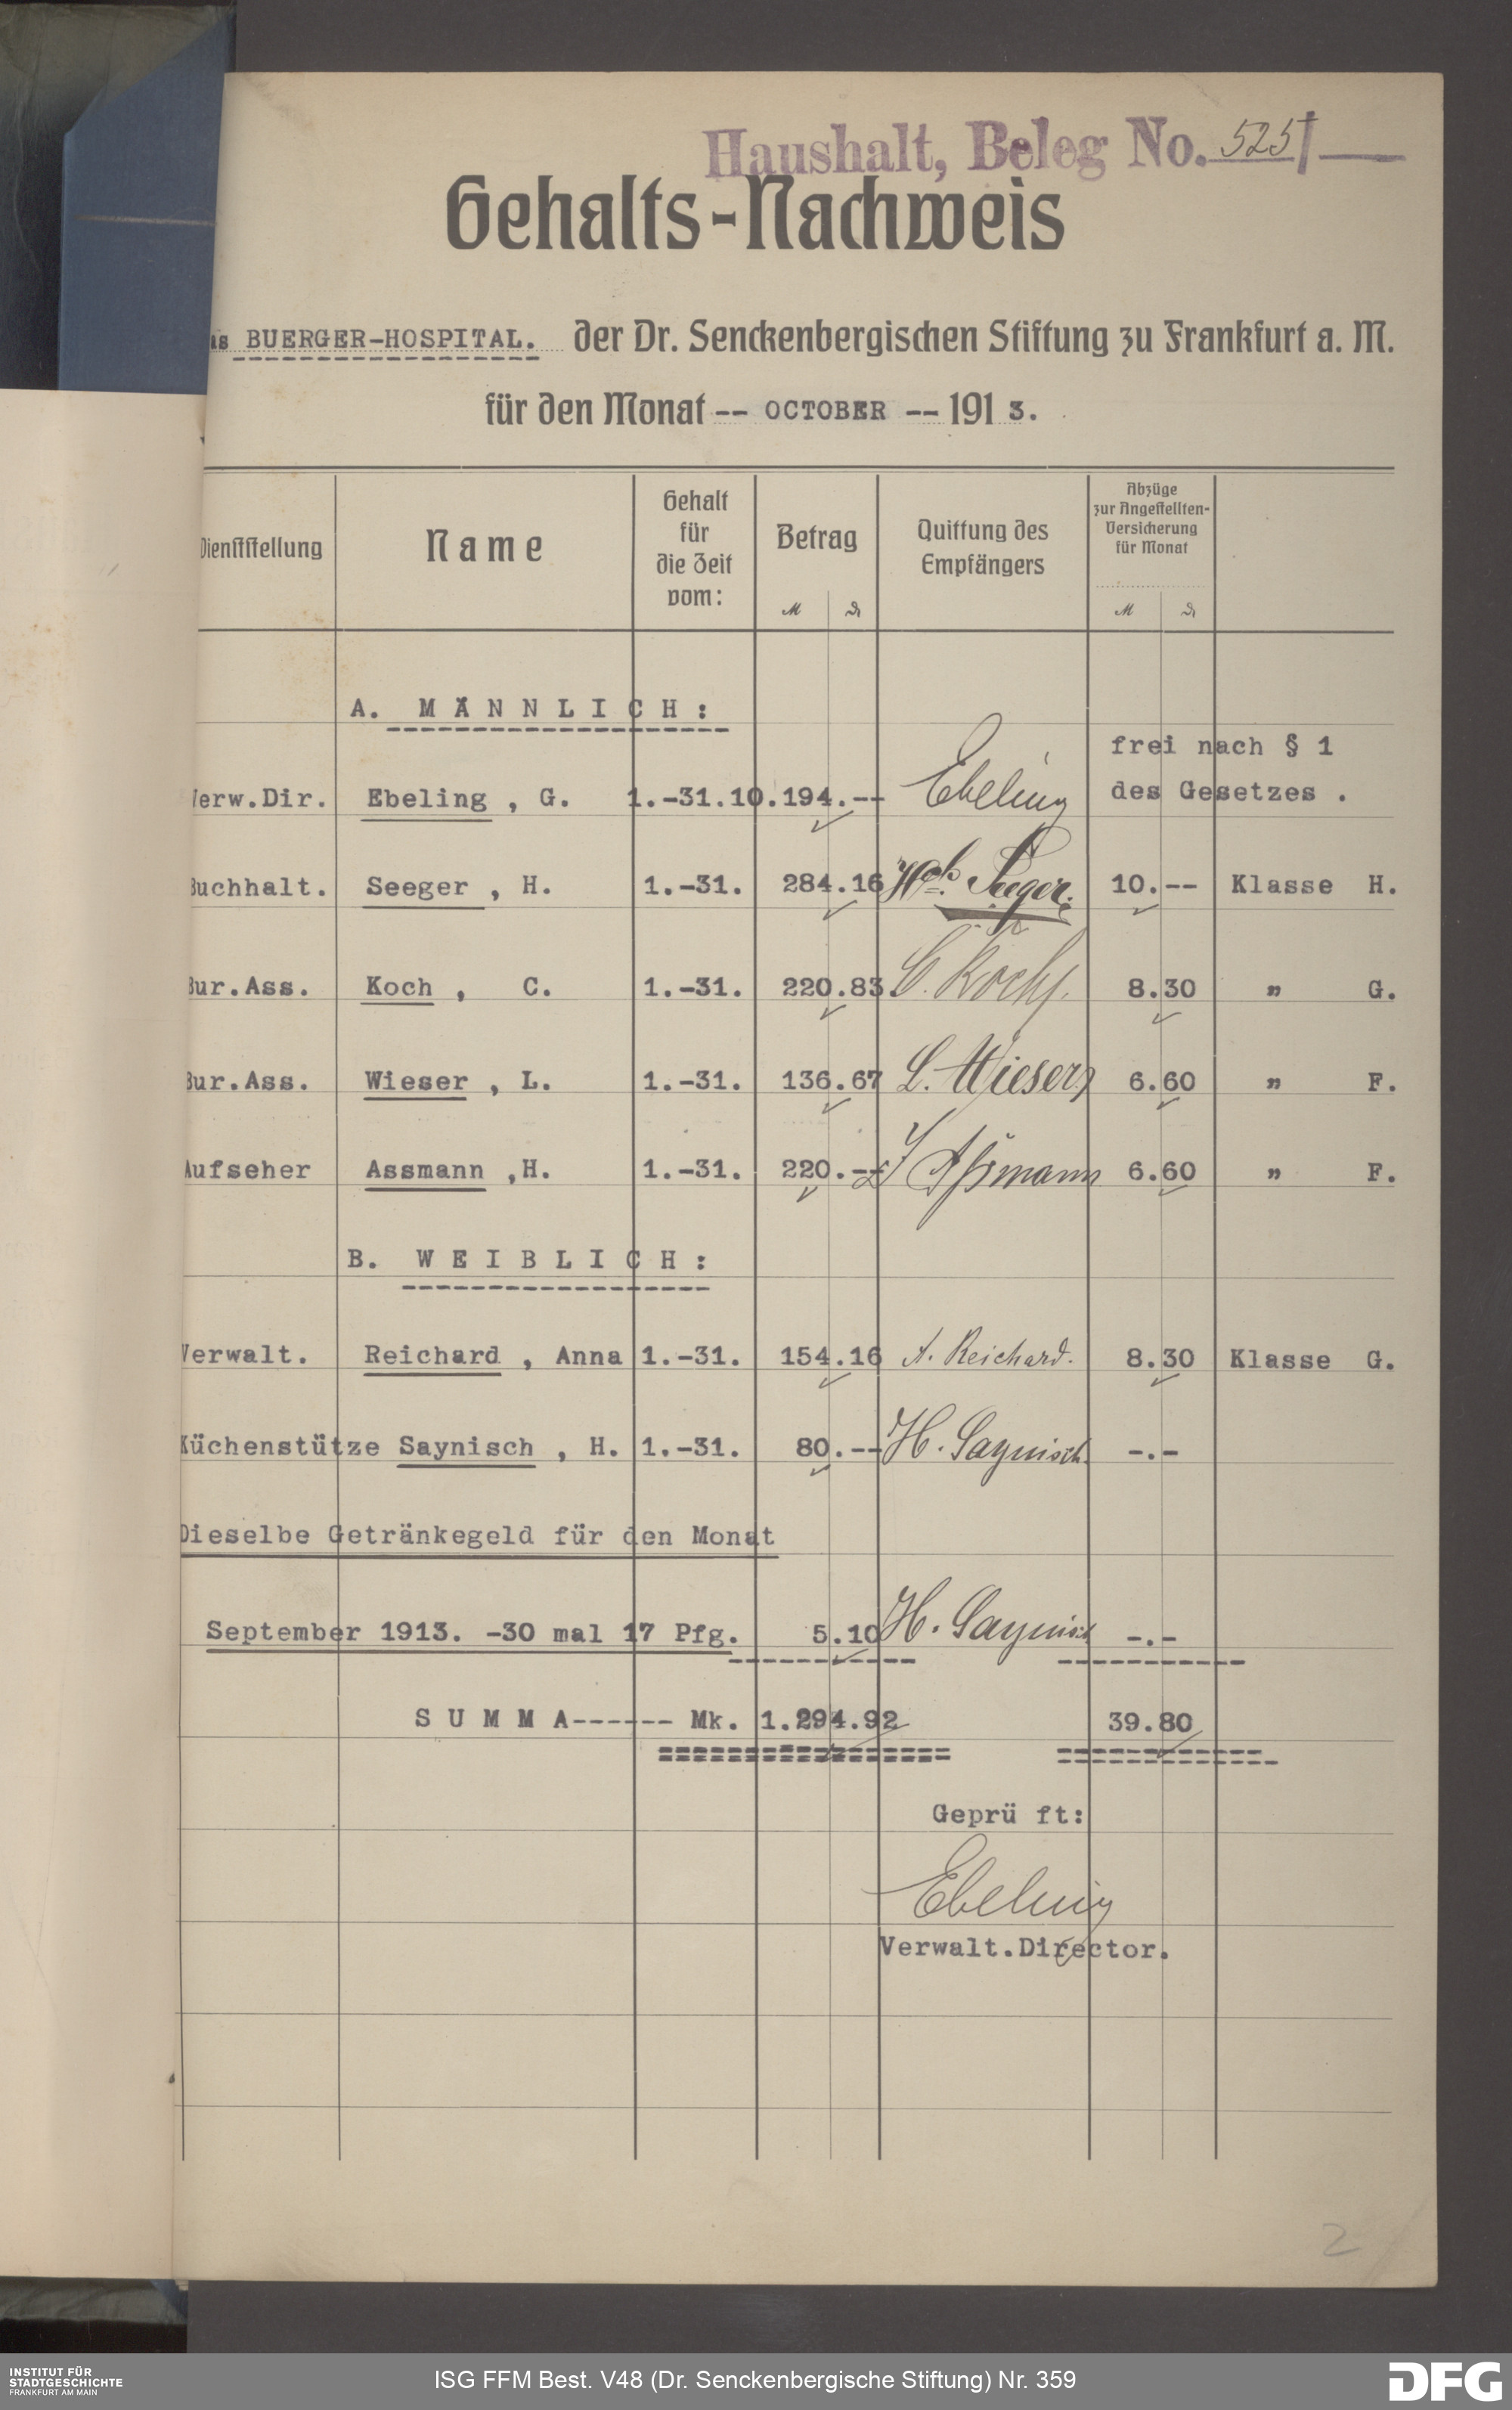 Haushalt, Beleg No. 525
Gehalts-Nachweis
BUERGER-HOSPITAL. der Dr. Senckenbergischen Stiftung zu Frankfurt a. M.
für den Monat -- OCTOBER -- 191 3.
Dienststellung Name Gehalt für die Zeit vom: Betrag Quittung des Empfängers Abzüge zur Angestellten-Versicherung für Monat
M ₰ M ₰
A. MÄNNLICH:
frei nach § 1
Verw.Dir. Ebeling , G. 1.-31.10.194.-- Ebeling des Gesetzes .
Buchhalt. Seeger , H. 1.-31. 284.16 Hch. Seeger. 10.-- Klasse H.
Bur.Ass. Koch , C. 1.-31. 220.83. C. Koch. 8.30 " G.
Bur.Ass. Wieser , L. 1.-31. 136.67 L. Wieser 6.60 " F.
Aufseher Assmann ,H. 1.-31. 220.-- Aßmann 6.60 " F.
B. WEIBLICH:
Verwalt. Reichard , Anna 1.-31. 154.16 A. Reichard. 8.30 Klasse G.
Küchenstütze Saynisch , H. 1.-31. 80.-- H. Saynisch. -.-
Dieselbe Getränkegeld für den Monat
September 1913. -30 mal 17 Pfg. 5.10 H. Saynisch -.-
SUMMA------ Mk. 1.294.92 39.80
Geprü ft:
Ebeling
Verwalt.Director.
2
INSTITUT FÜR
STADTGESCHICHTE
FRANKFURT AM MAIN
ISG FFM Best. V48 (Dr. Senckenbergische Stiftung) Nr. 359
DFG